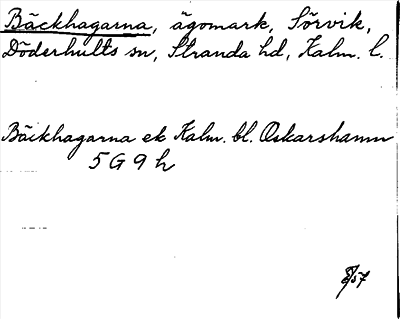 Bäckhagarna, ägomark, Sörvik,
Döderhults sn, Stranda hd, Kalm. l.
Bäckhagarna ek Kalm. bl. Oskarshamn
5 G 9 h